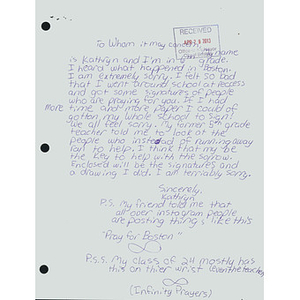 RECEIVED
APR 26 2013
To Whom it may concern, my name
is Kathryn and I'm in 6 grade.
I heard what happened in Boston.
I am extremely sorry. I felt so bad
that I went around school at recess
and got some signatures of people
who are praying for you. If I had
More time and more paper I could of
gotton my whole school to sign!
We all feel sorry. My former 5th grade
teacher told me to look at the
people who instead of running away
ran to help. I think that my be
the key to help with the sorrow.
Enclosed will be the signatures and
a drawing I did. I am terriably sorry.
Sincerely,
Kathryn
P.S. My friend told me that
all over instagram people
are posting things like this
"Pray for Boston"
P.S.S. My class of 24 mostly has
this on thier wrist (even the teacher)
(Infinity Prayers)